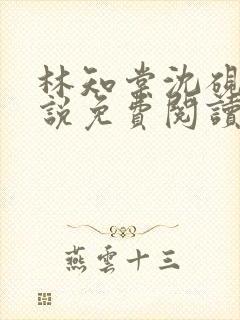 林知棠沈硯
說免費閱讀
燕雲十三